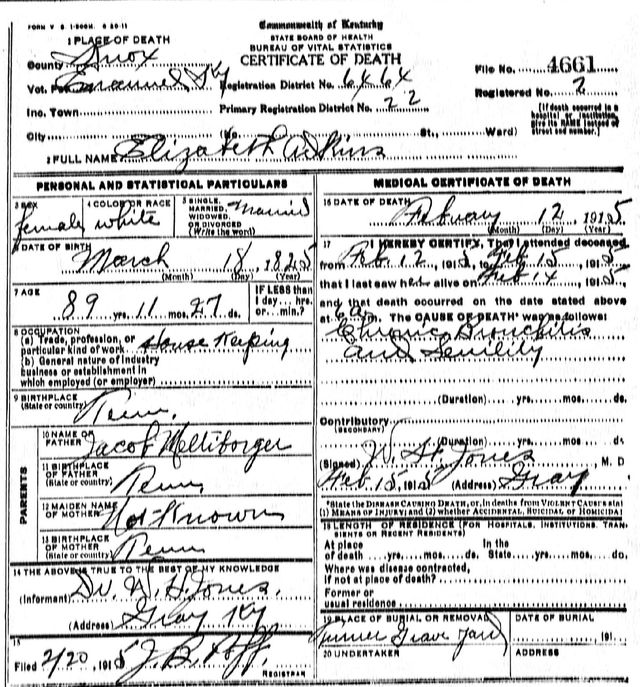 FORM V S 1-500M. 6 20-11
Commonwealth of Kentucky
STATE BOARD OF HEALTH
BUREAU OF VITAL STATISTICS
CERTIFICATE OF DEATH
1 PLACE OF DEATH
County Knox
Vot. Pct. Emanuel Ky
Inc. Town
City
Registration District No. 6464
Primary Registration District No. 22
File No. 4661
Registered No. 2
(No. St., Ward)
[If death occurred in a hospital or institution, give its NAME instead of street and number.]
2 FULL NAME Elizabeth Adkins
PERSONAL AND STATISTICAL PARTICULARS
3 SEX female
4 COLOR OR RACE white
5 SINGLE, MARRIED, WIDOWED, OR DIVORCED (Write the word) Married
6 DATE OF BIRTH
March 18, 1825
(Month) (Day) (Year)
7 AGE
89 yrs. 11 mos. 27 ds.
IF LESS than 1 day... hrs. or min.?
8 OCCUPATION
(a) Trade, profession, or particular kind of work House Keeping
(b) General nature of industry business or establishment in which employed (or employer)
9 BIRTHPLACE (State or country) Tenn.
PARENTS
10 NAME OF FATHER Jacob Meltiborger
11 BIRTHPLACE OF FATHER (State or country) Tenn
12 MAIDEN NAME OF MOTHER Not Known
13 BIRTHPLACE OF MOTHER (State or country) Tenn
14 THE ABOVE IS TRUE TO THE BEST OF MY KNOWLEDGE
(Informant) Dr. W. H. Jones
(Address) Gray Ky
15
Filed 2/20, 1915 J. B.
REGISTRAR
MEDICAL CERTIFICATE OF DEATH
16 DATE OF DEATH
February 12 1915
(Month) (Day) (Year)
17 I HEREBY CERTIFY, That I attended deceased
from Feb 12, 1915, to Feb 15, 1915
that I last saw her alive on Feb 14, 1915
and that death occurred on the date stated above
at 6 a m. The CAUSE OF DEATH* was as follows:
Chronic Bronchitis
and Senility
(Duration) yrs. mos. ds.
Contributory
(SECONDARY)
(Duration) yrs. mos. ds.
(Signed) W. H. Jones, M. D
Feb 15, 1915 (Address) Gray
*State the DISEASE CAUSING DEATH, or, in deaths from VIOLENT CAUSES state (1) MEANS OF INJURY; and (2) whether ACCIDENTAL, SUICIDAL or HOMICIDAL
18 LENGTH OF RESIDENCE (FOR HOSPITALS, INSTITUTIONS, TRANSIENTS OR RECENT RESIDENTS)
At place of death yrs. mos. ds. In the State yrs. mos. ds.
Where was disease contracted, if not at place of death?
Former or usual residence
19 PLACE OF BURIAL OR REMOVAL
Grave Yard
DATE OF BURIAL
191
20 UNDERTAKER
ADDRESS